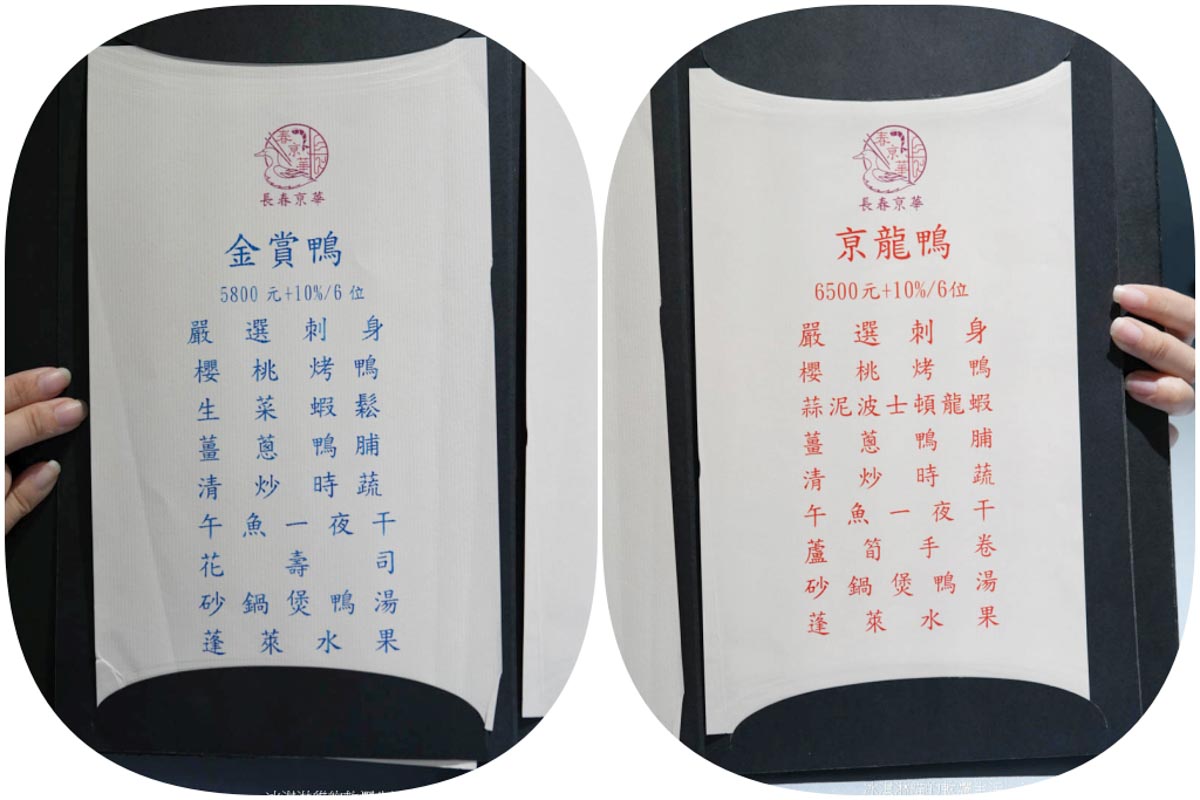 春京華
長春京華
金賞鴨
5800 元+10%/6 位
嚴選刺身
櫻桃烤鴨
生菜蝦鬆
薑蔥鴨脯
清炒時蔬
午魚一夜干
花壽司
砂鍋煲鴨湯
蓬萊水果
春京華
長春京華
京龍鴨
6500元+10%/6位
嚴選刺身
櫻桃烤鴨
蒜泥波士頓龍蝦
薑蔥鴨脯
清炒時蔬
午魚一夜干
蘆筍手卷
砂鍋煲鴨湯
蓬萊水果